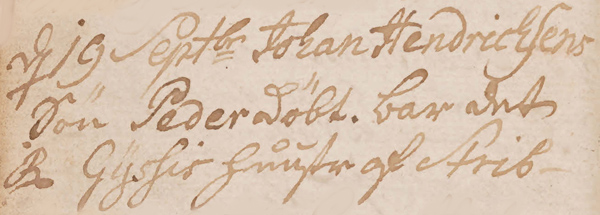 d 19 Septbr Johan Hendrichsens
Sön Peder Döbt. bar det
Hüustr af Strib-